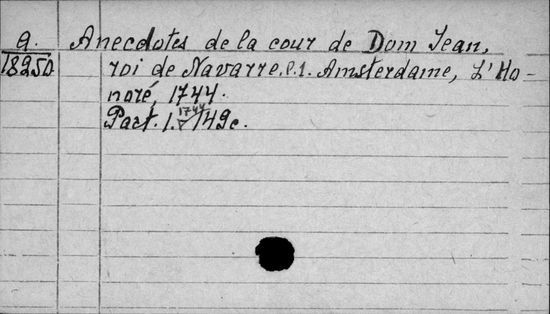 a. Anecdotes de la cour de Dom Jean,
18250 roi de Navarre. P.1. Amsterdame, L'Ho-
noré, 1744.
Part. 1. 1744 149c.